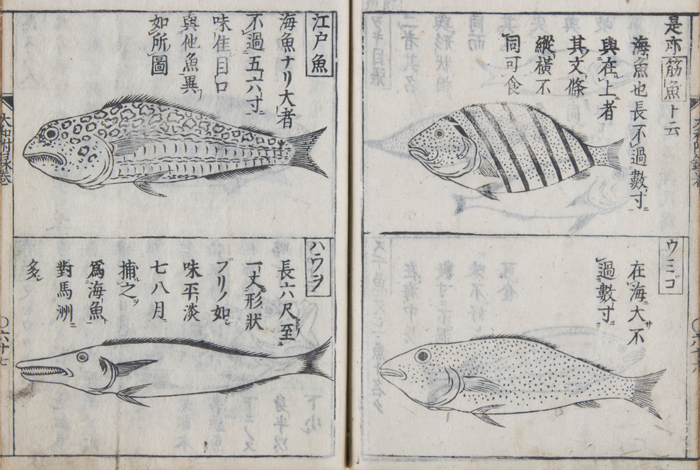 是亦筋魚ト云
海魚也長不過數寸
與在上者
其文條
縱橫不
同可食
ウミゴ
在海大サ不
過數寸
江戸魚
海魚ナリ大者
不過五六寸
味佳目口
與他魚異
如所圖
ハウヲ
長六尺至
一丈形狀
ブリノ如
味平淡
七八月
捕之
爲海魚
對馬洲
多